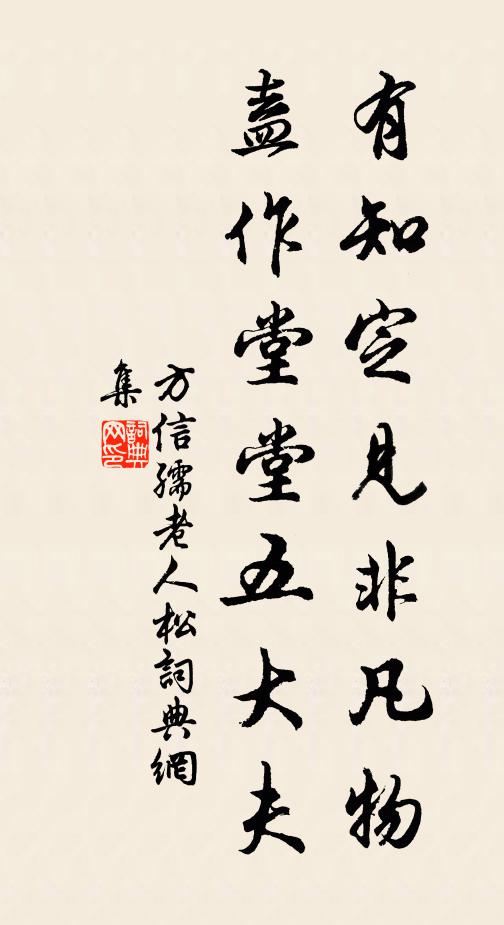 有知定見非凡物
盍作堂堂五大夫
方信孺老人松詞典網
集
詞典
网印